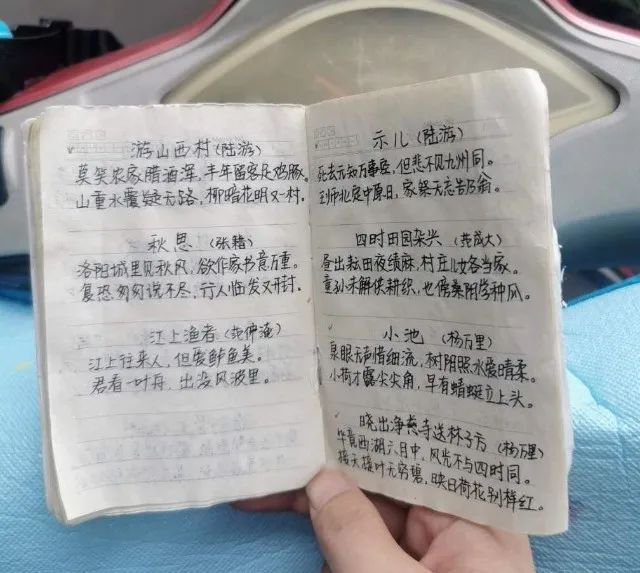 游山西村(陆游)
莫笑农家腊酒浑,丰年留客足鸡豚。
山重水覆疑无路,柳暗花明又一村。
秋思(张籍)
洛阳城里见秋风,欲作家书意万重。
复恐匆匆说不尽,行人临发又开封。
江上渔者(范仲淹)
江上往来人,但爱鲈鱼美。
君看一叶舟,出没风波里。
示儿(陆游)
死去元知万事空,但悲不见九州同。
王师北定中原日,家祭无忘告乃翁。
四时田园杂兴(范成大)
昼出耘田夜绩麻,村庄儿女各当家。
童孙未解供耕织,也傍桑阴学种瓜。
小池(杨万里)
泉眼无声惜细流,树阴照水爱晴柔。
小荷才露尖尖角,早有蜻蜓立上头。
晓出净慈寺送林子方(杨万里)
毕竟西湖六月中,风光不与四时同。
接天莲叶无穷碧,映日荷花别样红。